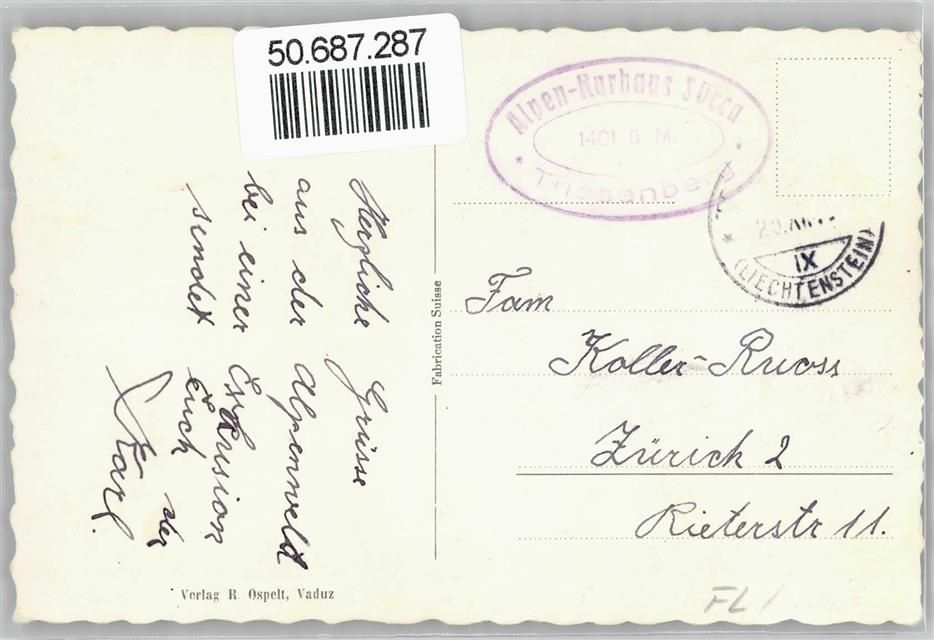 50.687.287
Alpen-Kurhaus Sücca
1401 ü. M.
* Triesenberg *
IX
(LIECHTENSTEIN)
Herzliche Grüsse
aus der Alpenwelt
bei einer Exkursion
sendet Euch der
Karl.
Fabrication Suisse
Fam
Koller-Ruoss
Zürich 2
Rieterstr 11.
Verlag R. Ospelt, Vaduz
FL